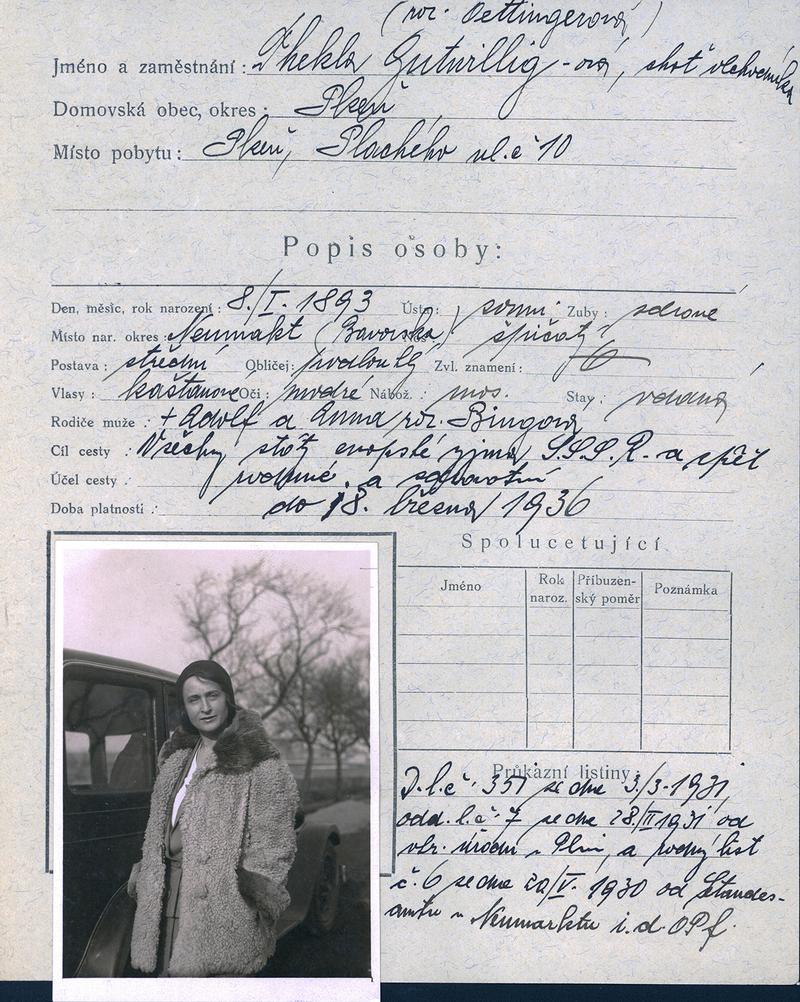 (roz. Oettingerová)
Jméno a zaměstnání: Thekla Gutwillig-ová, choť
Domovská obec, okres: Plzeň
Místo pobytu: Plzeň, Plachého ul. č 10
Popis osoby:
Den, měsíc, rok narození: 8./I. 1893 Ústa: Zuby: zdravé
Místo nar. okres: Neumarkt (Bavorsko) špičatý
Postava: střední Obličej: podlouhlý Zvl. znamení:
Vlasy: kaštanové Oči: modré Nábož.: mos. Stav: vdaná
Rodiče muže: + Adolf a Anna roz. Bingová
Cíl cesty: Všechny státy evropské vyjma S.S.S.R. a zpět
Účel cesty: rodinné a zdravotní
Doba platnosti: do 18. března 1936
Spolucestující
Jméno Rok naroz. Příbuzen-ský poměr Poznámka
Průkazní listiny:
D.l.č. 357 ze dne 3./3. 1931,
odd. l.č. 7 ze dne 28./II 1931 od
úřadu v Plzni, a rodný list
č. 6 ze dne 20/V. 1930 od Standes-
amtu v Neumarktu i.d. OPf.